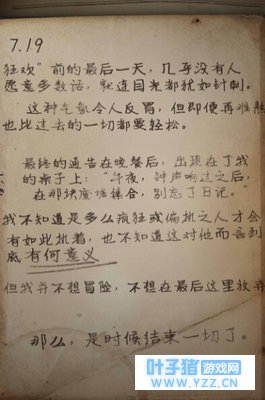 7.19
狂欢”前的最后一天，几乎没有人
愿意多数话，就连目光都犹如针刺。
这种气氛令人反胃，但即便再难熬
也比过去的一切都要轻松。
最终的通告在晚餐后，出现在了我
的桌子上：“午夜，钟声响过之后，
在那块废墟集合，别忘了日记。”
我不知道是多么疯狂或偏执之人才会
有如此执着，也不知道这对他而言到
底有何意义
但我并不想冒险，不想在最后这里放弃
那么，是时候结束一切了。
叶子猪游戏网
WWW.YZZ.CN